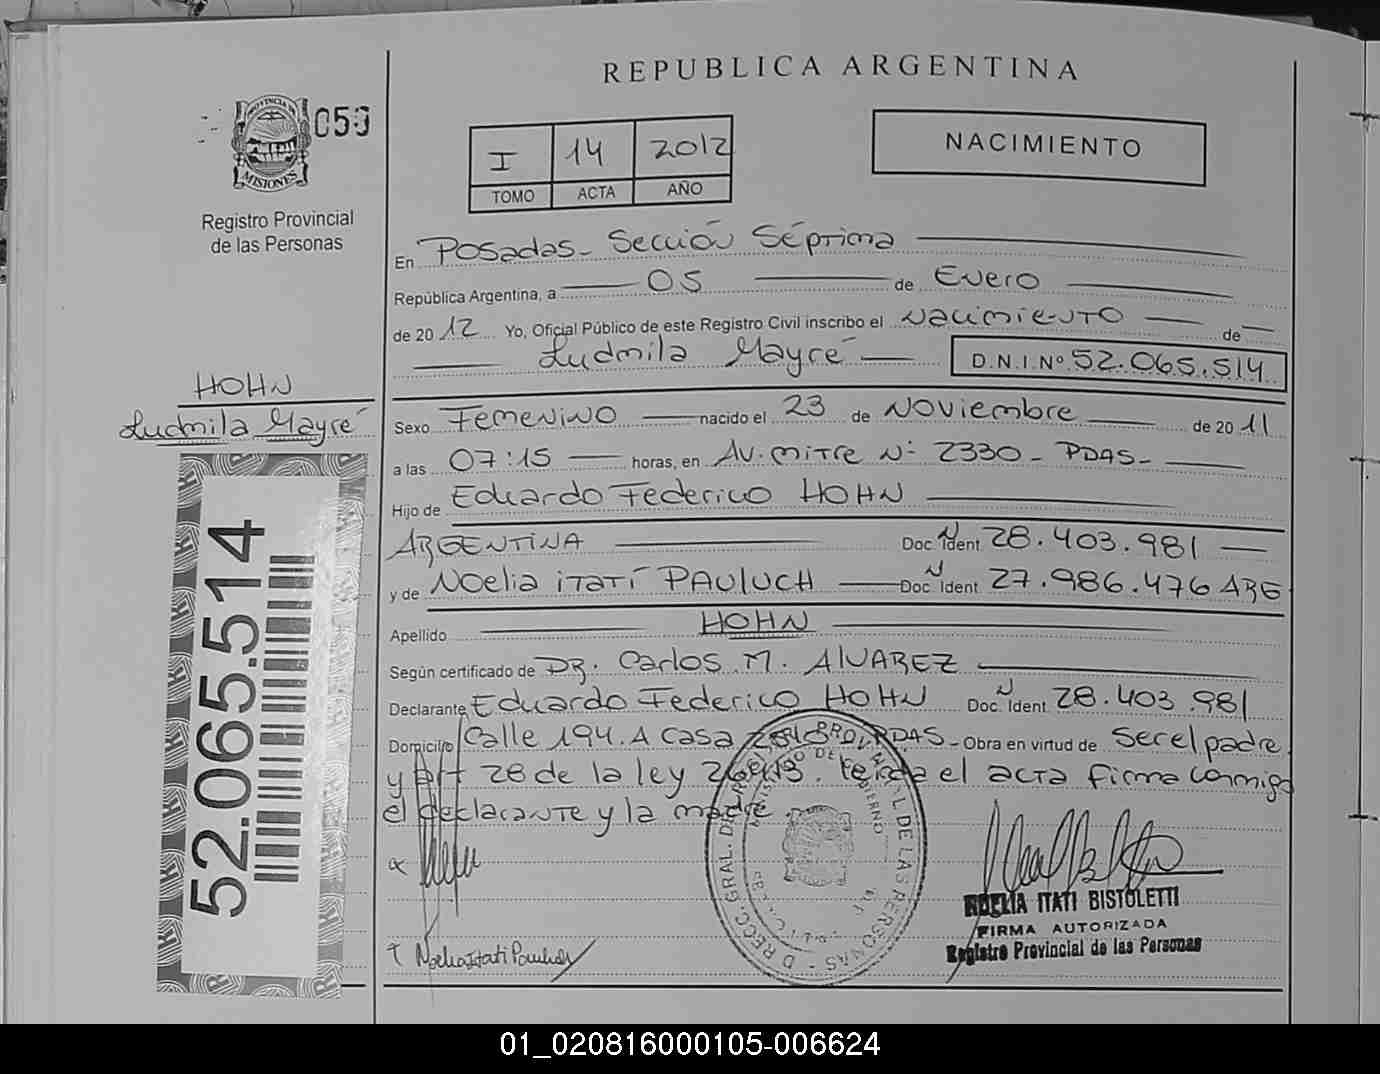 REPUBLICA ARGENTINA
PROVINCIA DE
MISIONES
Registro Provincial
de las Personas
I 14 2012
TOMO ACTA AÑO
NACIMIENTO
En Posadas - Sección Séptima
República Argentina, a 05 de Enero
de 2012 Yo, Oficial Público de este Registro Civil inscribo el Nacimiento de
Ludmila Mayré D.N.I.Nº 52.065.514
HOHN
Ludmila Mayré
Sexo Femenino nacido el 23 de Noviembre de 2011
a las 07:15 horas, en Av. Mitre Nº 2330 - PDAS -
Hijo de Eduardo Federico HOHN
ARGENTINA Doc. Ident. N 28.403.981
y de Noelia itatí PAULUCH Doc. Ident. N 27.986.476 ARG
Apellido HOHN
Según certificado de DR. Carlos M. ALVAREZ
Declarante Eduardo Federico HOHN Doc. Ident. N 28.403.981
Domicilio Calle 194. A Casa PDAS - Obra en virtud de Ser el padre
y art 28 de la ley leída el acta firma conmigo
el declarante y la madre.
52.065.514
DIRECC. GRAL. DEL REGISTRO PROVINCIAL DE LAS PERSONAS
MINISTERIO DE GOBIERNO
Noelia Itati Pauluch
NOELIA ITATI BISTOLETTI
FIRMA AUTORIZADA
Registro Provincial de las Personas
01_020816000105-006624